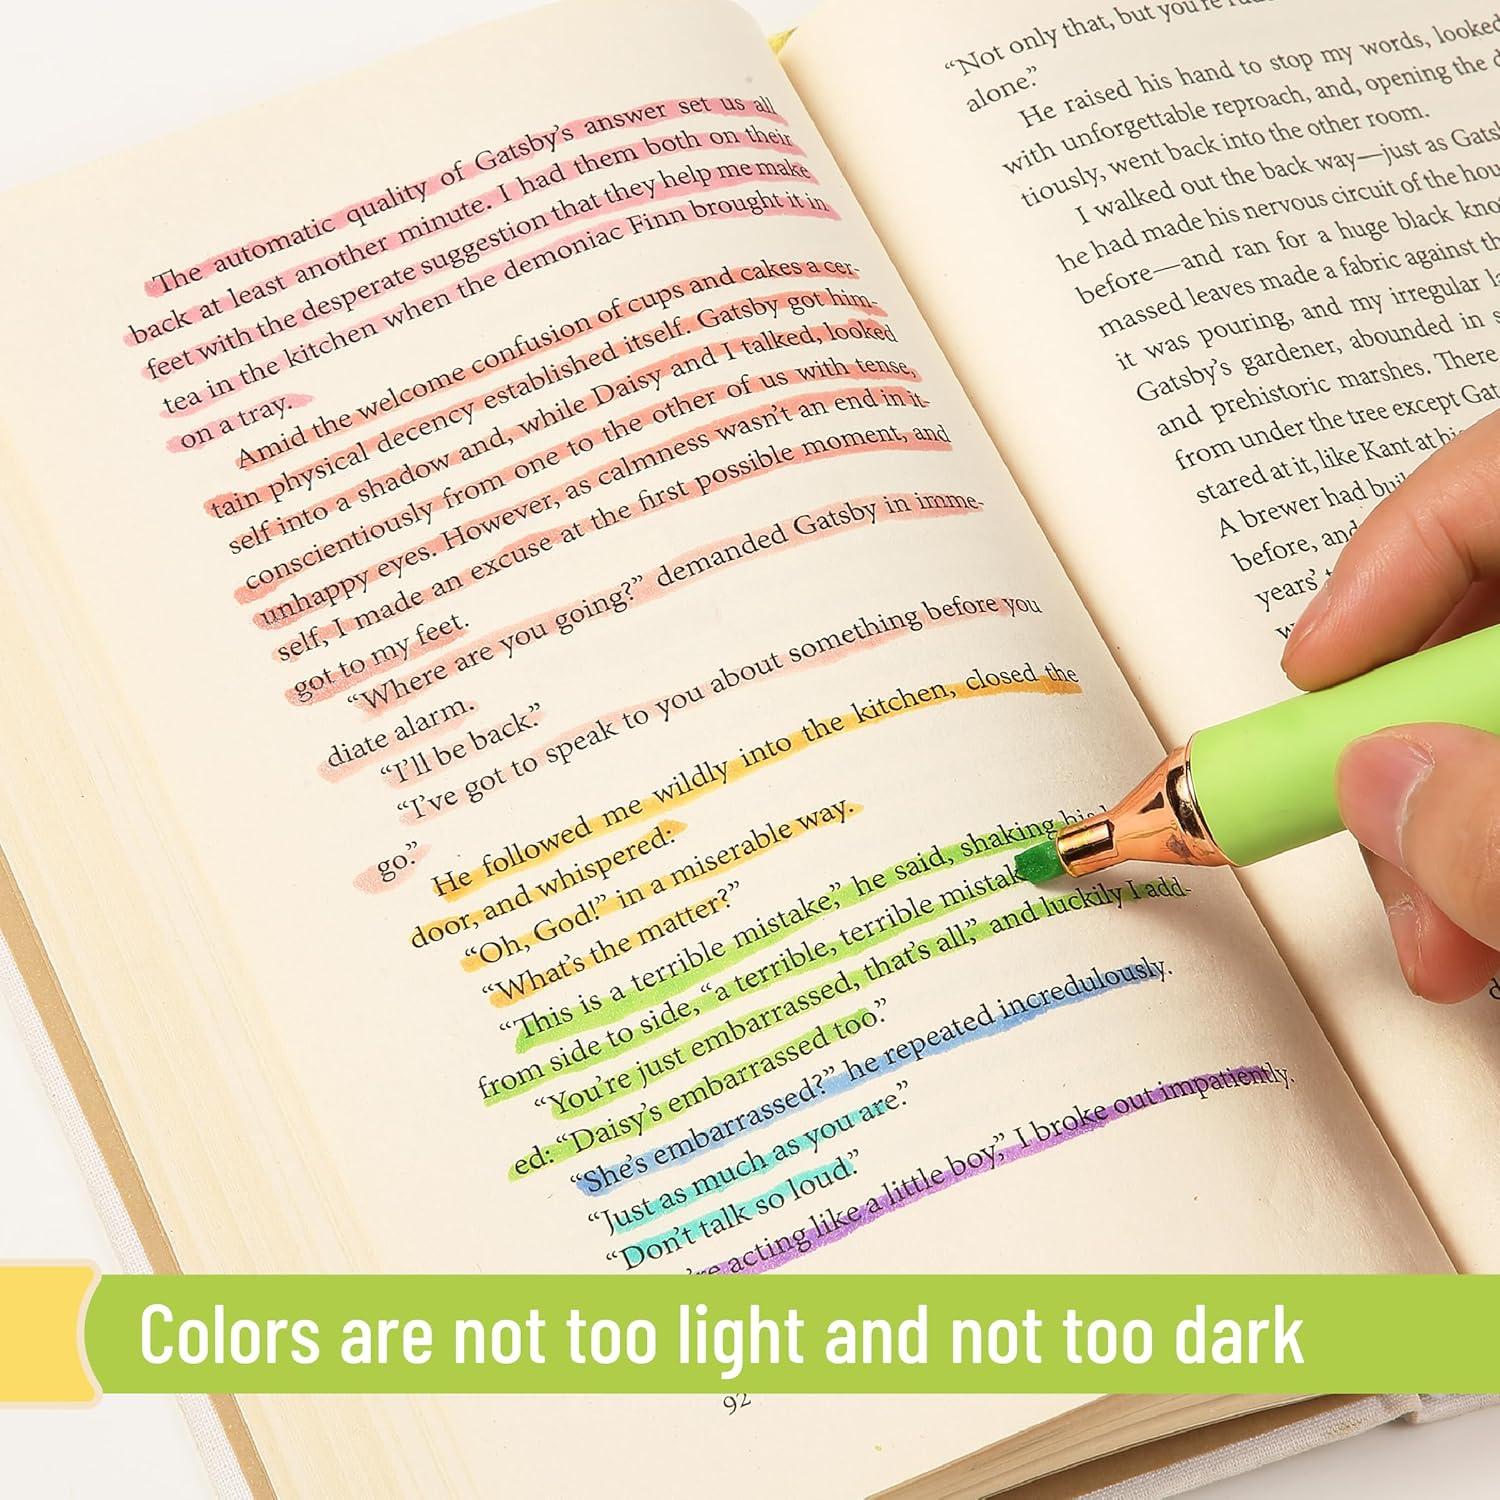 "The automatic quality of Gatsby's answer set us all
back at least another minute. I had them both on their
feet with the desperate suggestion that they help me make
tea in the kitchen when the demoniac Finn brought it in
on a tray.
Amid the welcome confusion of cups and cakes a cer-
tain physical decency established itself. Gatsby got him-
self into a shadow and, while Daisy and I talked, looked
conscientiously from one to the other of us with tense,
unhappy eyes. However, as calmness wasn't an end in it-
self, I made an excuse at the first possible moment, and
got to my feet.
"Where are you going?" demanded Gatsby in imme-
diate alarm.
"I'll be back."
"I've got to speak to you about something before you
go."
He followed me wildly into the kitchen, closed the
door, and whispered:
"Oh, God!" in a miserable way.
"What's the matter?"
"This is a terrible mistake," he said, shaking
from side to side, "a terrible, terrible
"You're just embarrassed, that's all," and luckily I add-
ed: "Daisy's embarrassed too."
"She's embarrassed?" he repeated incredulously.
"Just as much as you are."
"Don't talk so loud."
acting like a little boy," I broke out impatiently.
92
"Not only that, but you're
alone."
He raised his hand to stop my words, looked
with unforgettable reproach, and, opening the
tiously, went back into the other room.
I walked out the back way—just as
he had made his nervous circuit of the
before—and ran for a huge black
massed leaves made a fabric against
it was pouring, and my irregular
Gatsby's gardener, abounded in
and prehistoric marshes. There
from under the tree except
stared at it, like Kant at
A brewer had
before,
years'
Colors are not too light and not too dark